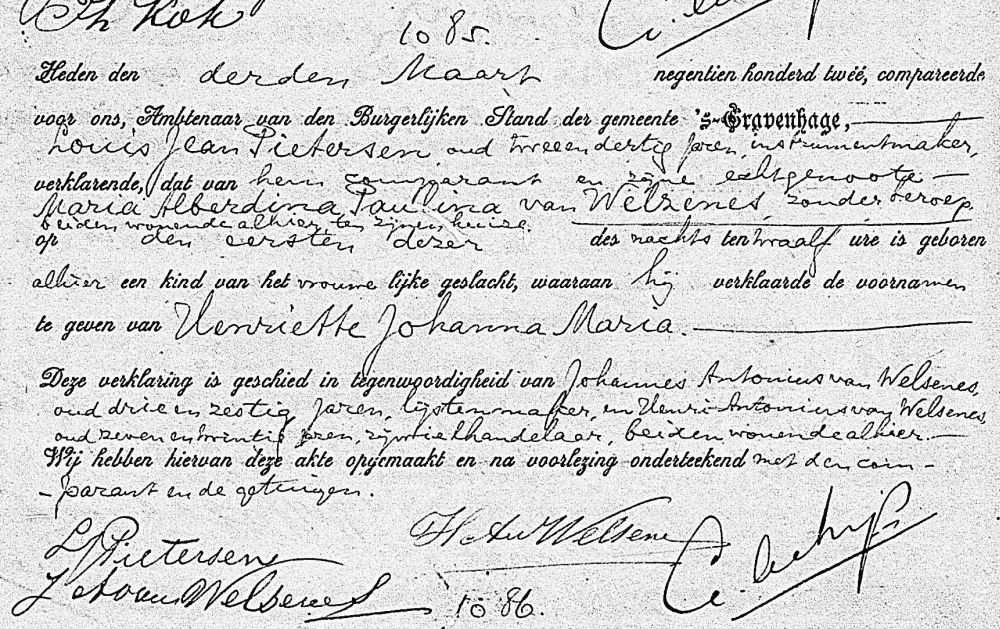 Th Kok
1085.
Heden den derden Maart negentien honderd twéé, compareerde
voor ons, Ambtenaar van den Burgerlijken Stand der gemeente 's-Gravenhage,
Louis Jean Pietersen, oud tweeendertig jaren, instrumentmaker,
verklarende, dat van hem comparant en zijne echtgenoote
Maria Alberdina Paulina van Welzenes, zonder beroep,
beiden wonende alhier, ten zijnen huize.
op den eersten dezer des nachts ten twaalf ure is geboren
alhier een kind van het vrouwelijke geslacht, waaraan hij verklaarde de voornamen
te geven van Henriette Johanna Maria.
Deze verklaring is geschied in tegenwoordigheid van Johannes Antonius van Welsenes,
oud drie en zestig jaren, lijstenmaker, en Henri Antonius van Welsenes,
oud zeven en twintig jaren, rijwielhandelaar, beiden wonende alhier.
Wij hebben hiervan deze akte opgemaakt en na voorlezing onderteekend met den com-
-parant en de getuigen.
L J Pietersen
H A v Welsenes
J A van Welsenes
1086.